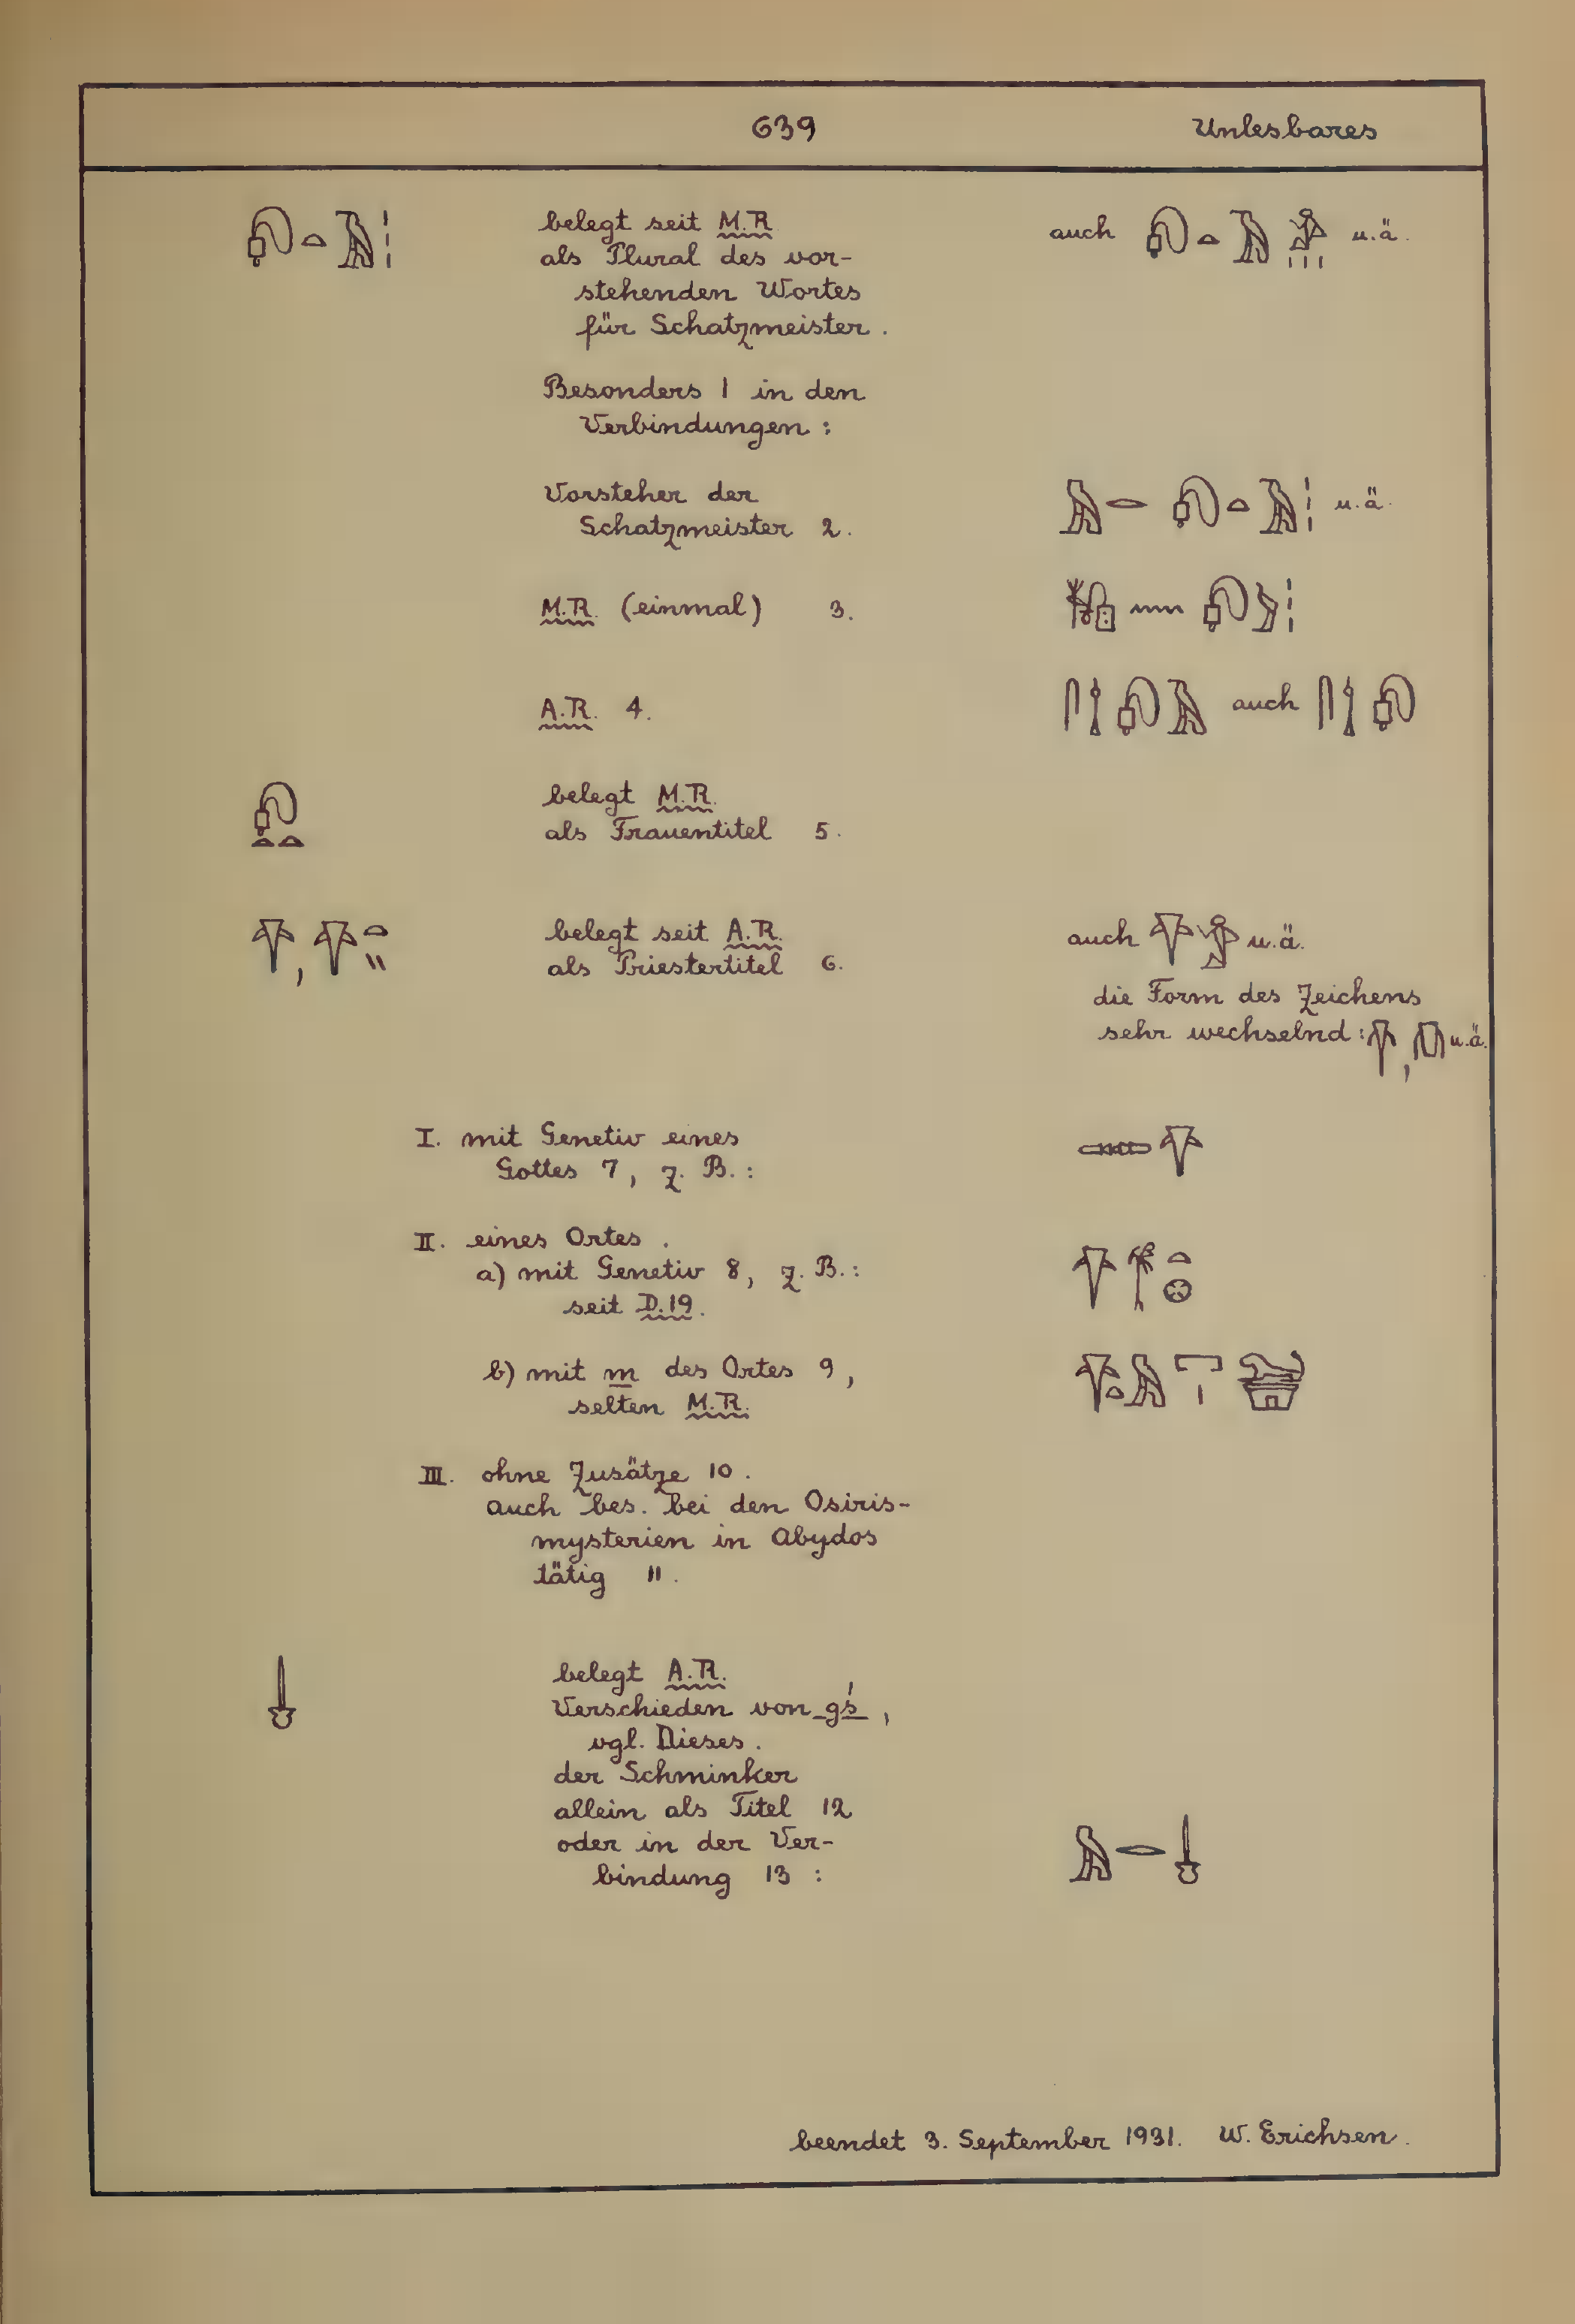 639 Unlesbares
belegt seit M.R.
als Plural des vor-
stehenden Wortes
für Schatzmeister.
auch u.ä.
Besonders 1 in den
Verbindungen:
Vorsteher der
Schatzmeister 2.
u.ä.
M.R. (einmal) 3.
A.R. 4.
auch
belegt M.R.
als Frauentitel 5.
belegt seit A.R.
als Priestertitel 6.
auch u.ä.
die Form des Zeichens
sehr wechselnd: , u.ä.
I. mit Genetiv eines
Gottes 7, z. B.:
II. eines Ortes.
a) mit Genetiv 8, z. B.:
seit D.19.
b) mit m des Ortes 9,
selten M.R.
III. ohne Zusätze 10.
auch bes. bei den Osiris-
mysterien in Abydos
tätig 11.
belegt A.R.
Verschieden von gś,
vgl. Dieses.
der Schminker
allein als Titel 12
oder in der Ver-
bindung 13:
beendet 3. September 1931. W. Erichsen.